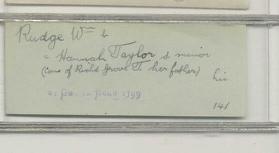 Rudge Wm b
= Hannah Taylor s minor
(Cons of Richd Grove T. her father) lic
1799
141